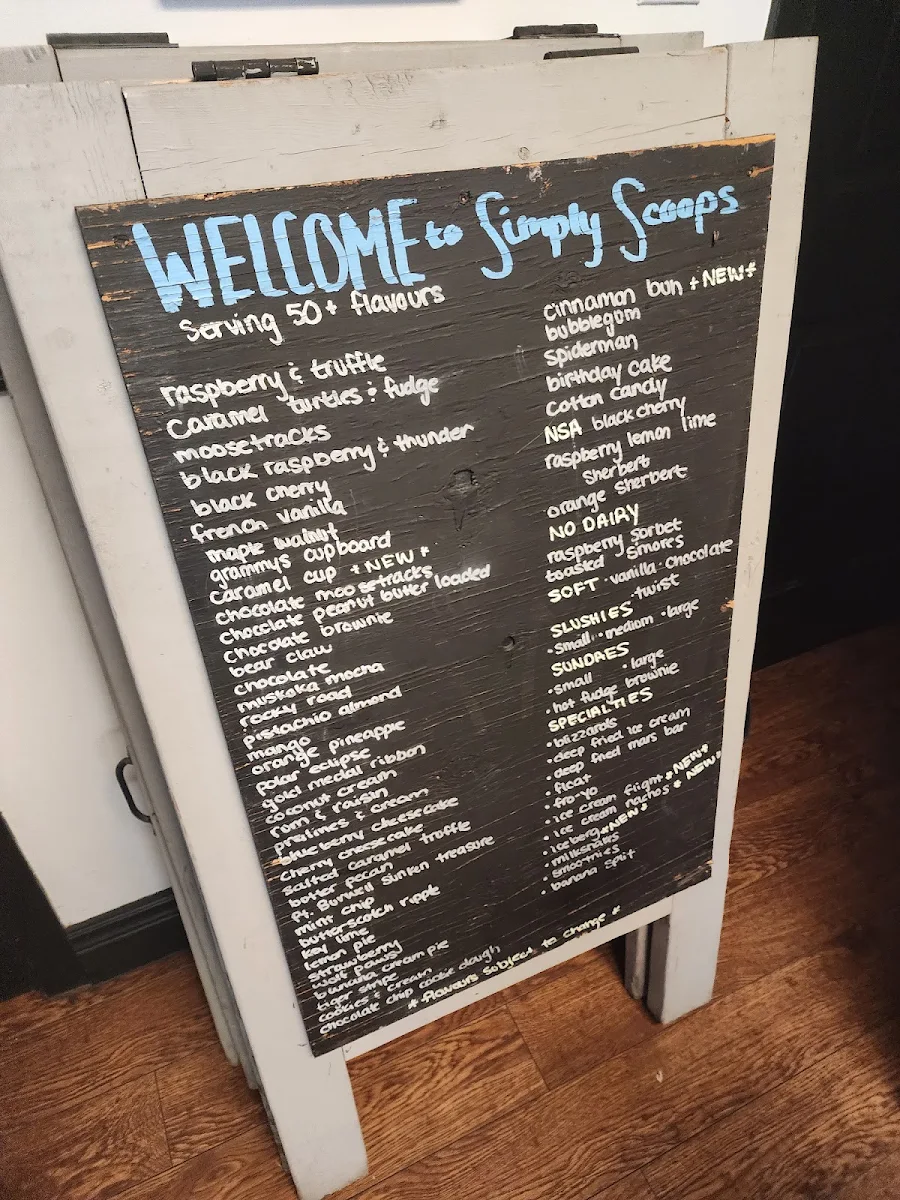 WELCOME to Simply Scoops
Serving 50+ flavours
raspberry & truffle
Caramel turtles & fudge
moosetracks
black raspberry & thunder
black cherry
french vanilla
maple walnut
grammys cupboard
caramel cup *NEW*
chocolate moosetracks
chocolate peanut butter loaded
chocolate brownie
bear claw
chocolate
muskoka mocha
rocky road
pistachio almond
mango
orange pineapple
polar eclipse
gold medal ribbon
coconut cream
rum & raisin
pralines & cream
blueberry cheesecake
cherry cheesecake
salted caramel truffle
butter pecan
Pt. Burwell sunken treasure
mint chip
butterscotch ripple
key lime
lemon pie
strawberry
wolf paws
banana cream pie
tiger stripe
cookies & cream
chocolate chip cookie dough
cinnamon bun *NEW*
bubblegum
spiderman
birthday cake
cotton candy
NSA black cherry
raspberry lemon lime
sherbert
orange sherbert
NO DAIRY
raspberry sorbet
toasted smores
SOFT ·vanilla ·chocolate
·twist
SLUSHIES
·small ·medium ·large
SUNDAES
·small ·large
·hot fudge brownie
SPECIALTIES
·blizzards
·deep fried ice cream
·deep fried mars bar
·float
·fro-yo
·ice cream flight *NEW*
·ice cream nachos *NEW*
·iceberg *NEW*
·milkshakes
·smoothies
·banana split
*flavours subject to change*